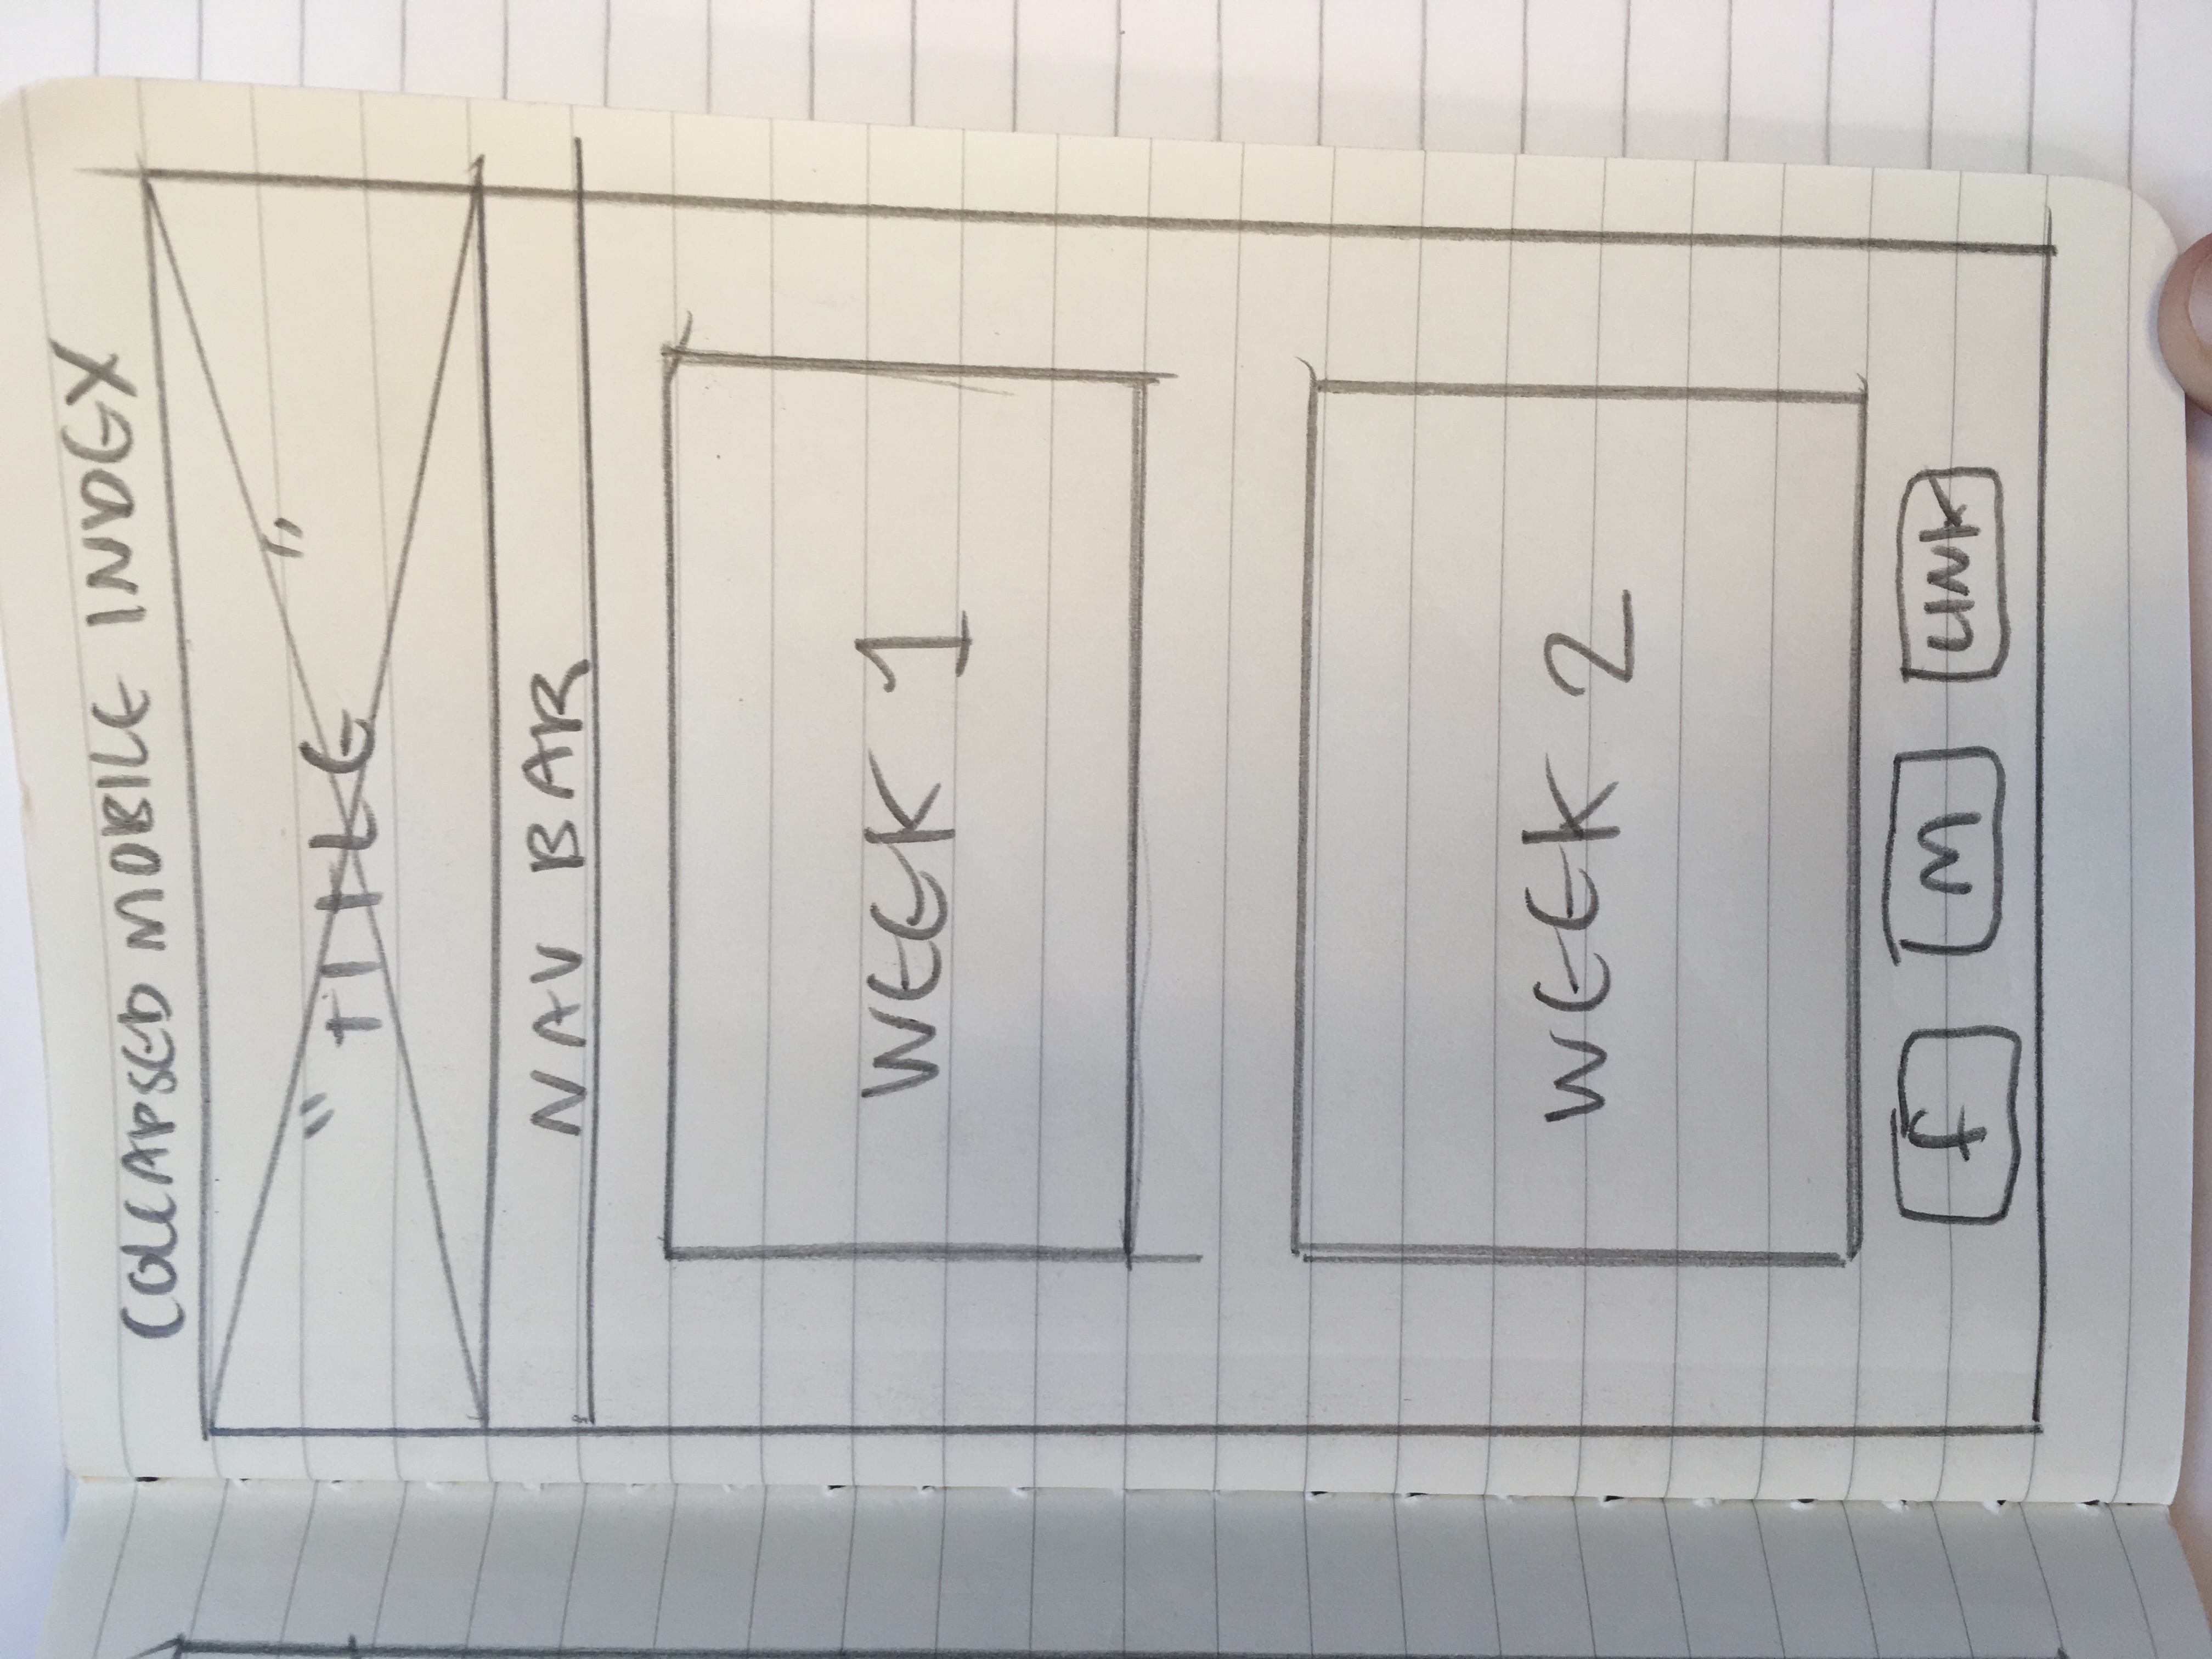 COLLAPSED MOBILE INDEX
" TITLE "
NAV BAR
WEEK 1
WEEK 2
f M LINK